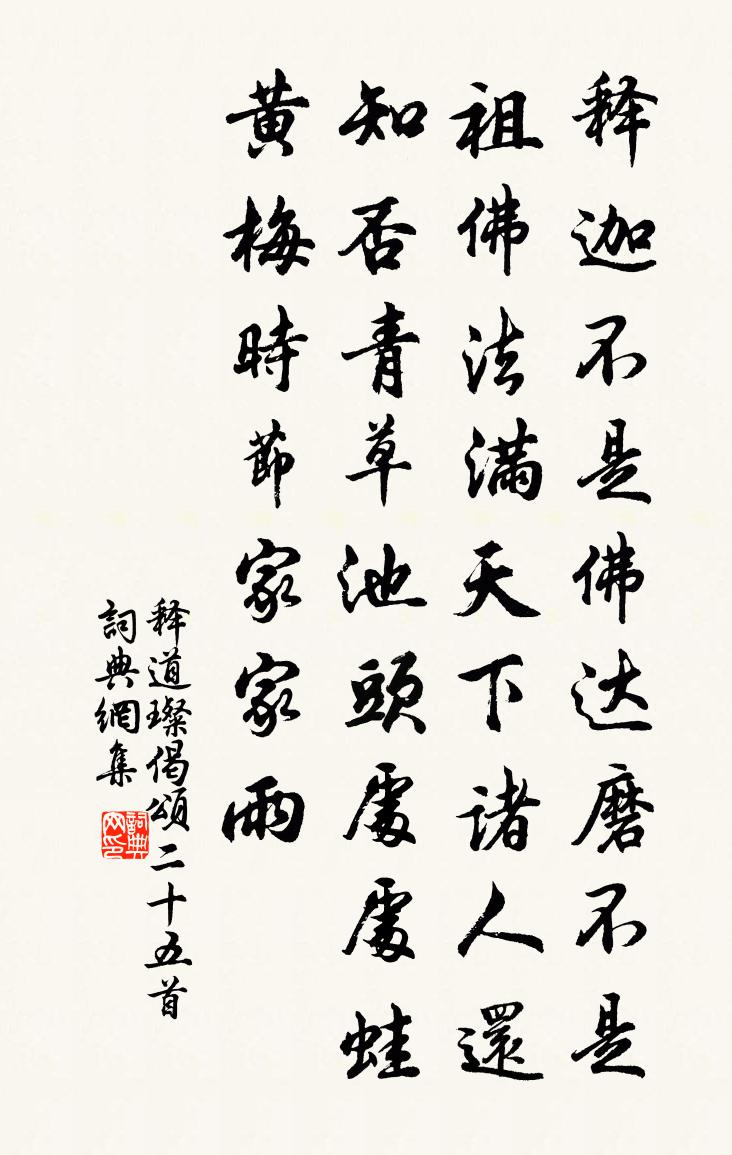 释迦不是佛达磨不是
祖佛法满天下诸人還
知否青草池頭處處蛙
黄梅時節家家雨
释道璨偈頌二十五首
詞典網集
詞典网印